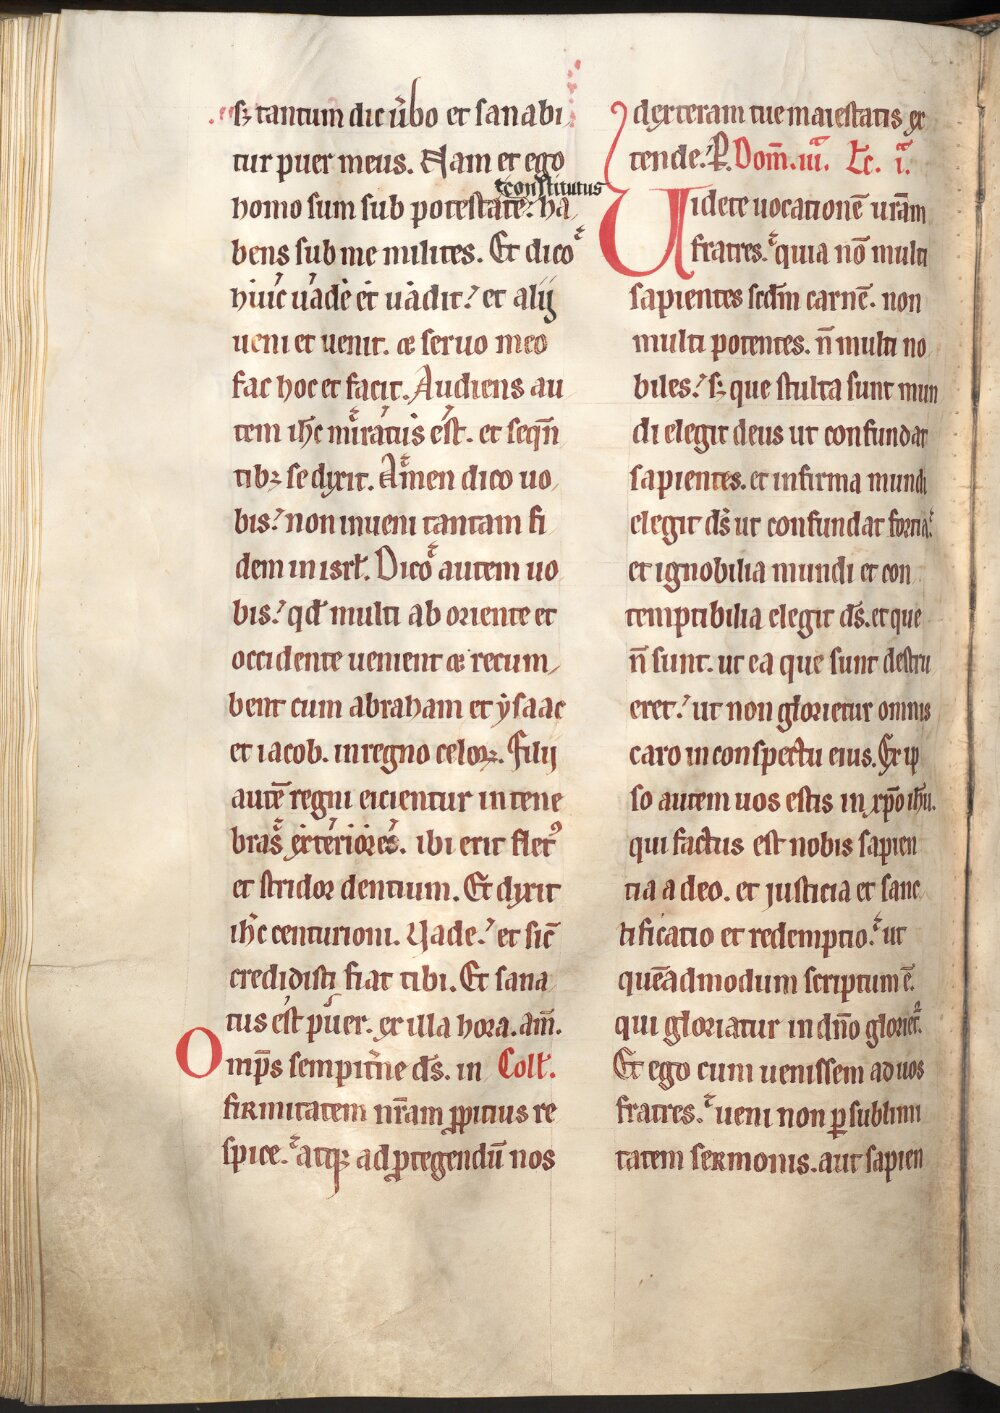 sꝫ tantum dic ūbo et sanabi
tur puer meus. Nam et ego
constitutus
homo sum sub potestate: ha
bens sub me milites. Et dico
huic uade et uadit: et alij
ueni et uenit. ⁊ seruo meo
fac hoc et facit. Audiens au
tem ih̄c miratus est. et seqn̄
tibꝫ se dixit. Amen dico uo
bis: non inueni tantam fi
dem in isrł. Dico autem uo
bis: qđ multi ab oriente et
occidente uenient ⁊ recum
bent cum abraham et ẏsaac
et iacob. in regno celoꝝ. Filij
autē regni eicientur in tene
bras exteriores. ibi erit flet᷒
et stridor dentium. Et dixit
ih̄c centurioni. Vade: et sic̄
credidisti fiat tibi. Et sana
tus est puer. ex illa hora. am̄.
Omp̄s sempit̄ne ds̄. in Coll̄.
firmitatem nr̄am ꝓpitius re
spice. atqꝫ ad ꝓtegendū nos
dexteram tue maiestatis ex
tende. P̄. Dom̄. iii. Lc̄. i.
Uidete uocationē urām
fratres. quia nō multi
sapientes scđm carnē. non
multi potentes. n̄ multi no
biles: sꝫ que stulta sunt mun
di elegit deus ut confundat
sapientes. et infirma mundi
elegit ds̄ ut confundat fortia.
et ignobilia mundi et con
temptibilia elegit ds̄. et que
n̄ sunt. ut ea que sunt destru
eret: ut non glorietur omnis
caro in conspectu eius. Ex ip
so autem uos estis in xp̄o ih̄u.
qui factus est nobis sapien
tia a deo. et justicia et sanc
tificatio et redemptio. ut
quēadmodum scriptum ē.
qui gloriatur in dn̄o glorieť.
Et ego cum uenissem ad uos
fratres. ueni non ꝑ sublimi
tatem sermonis. aut sapien